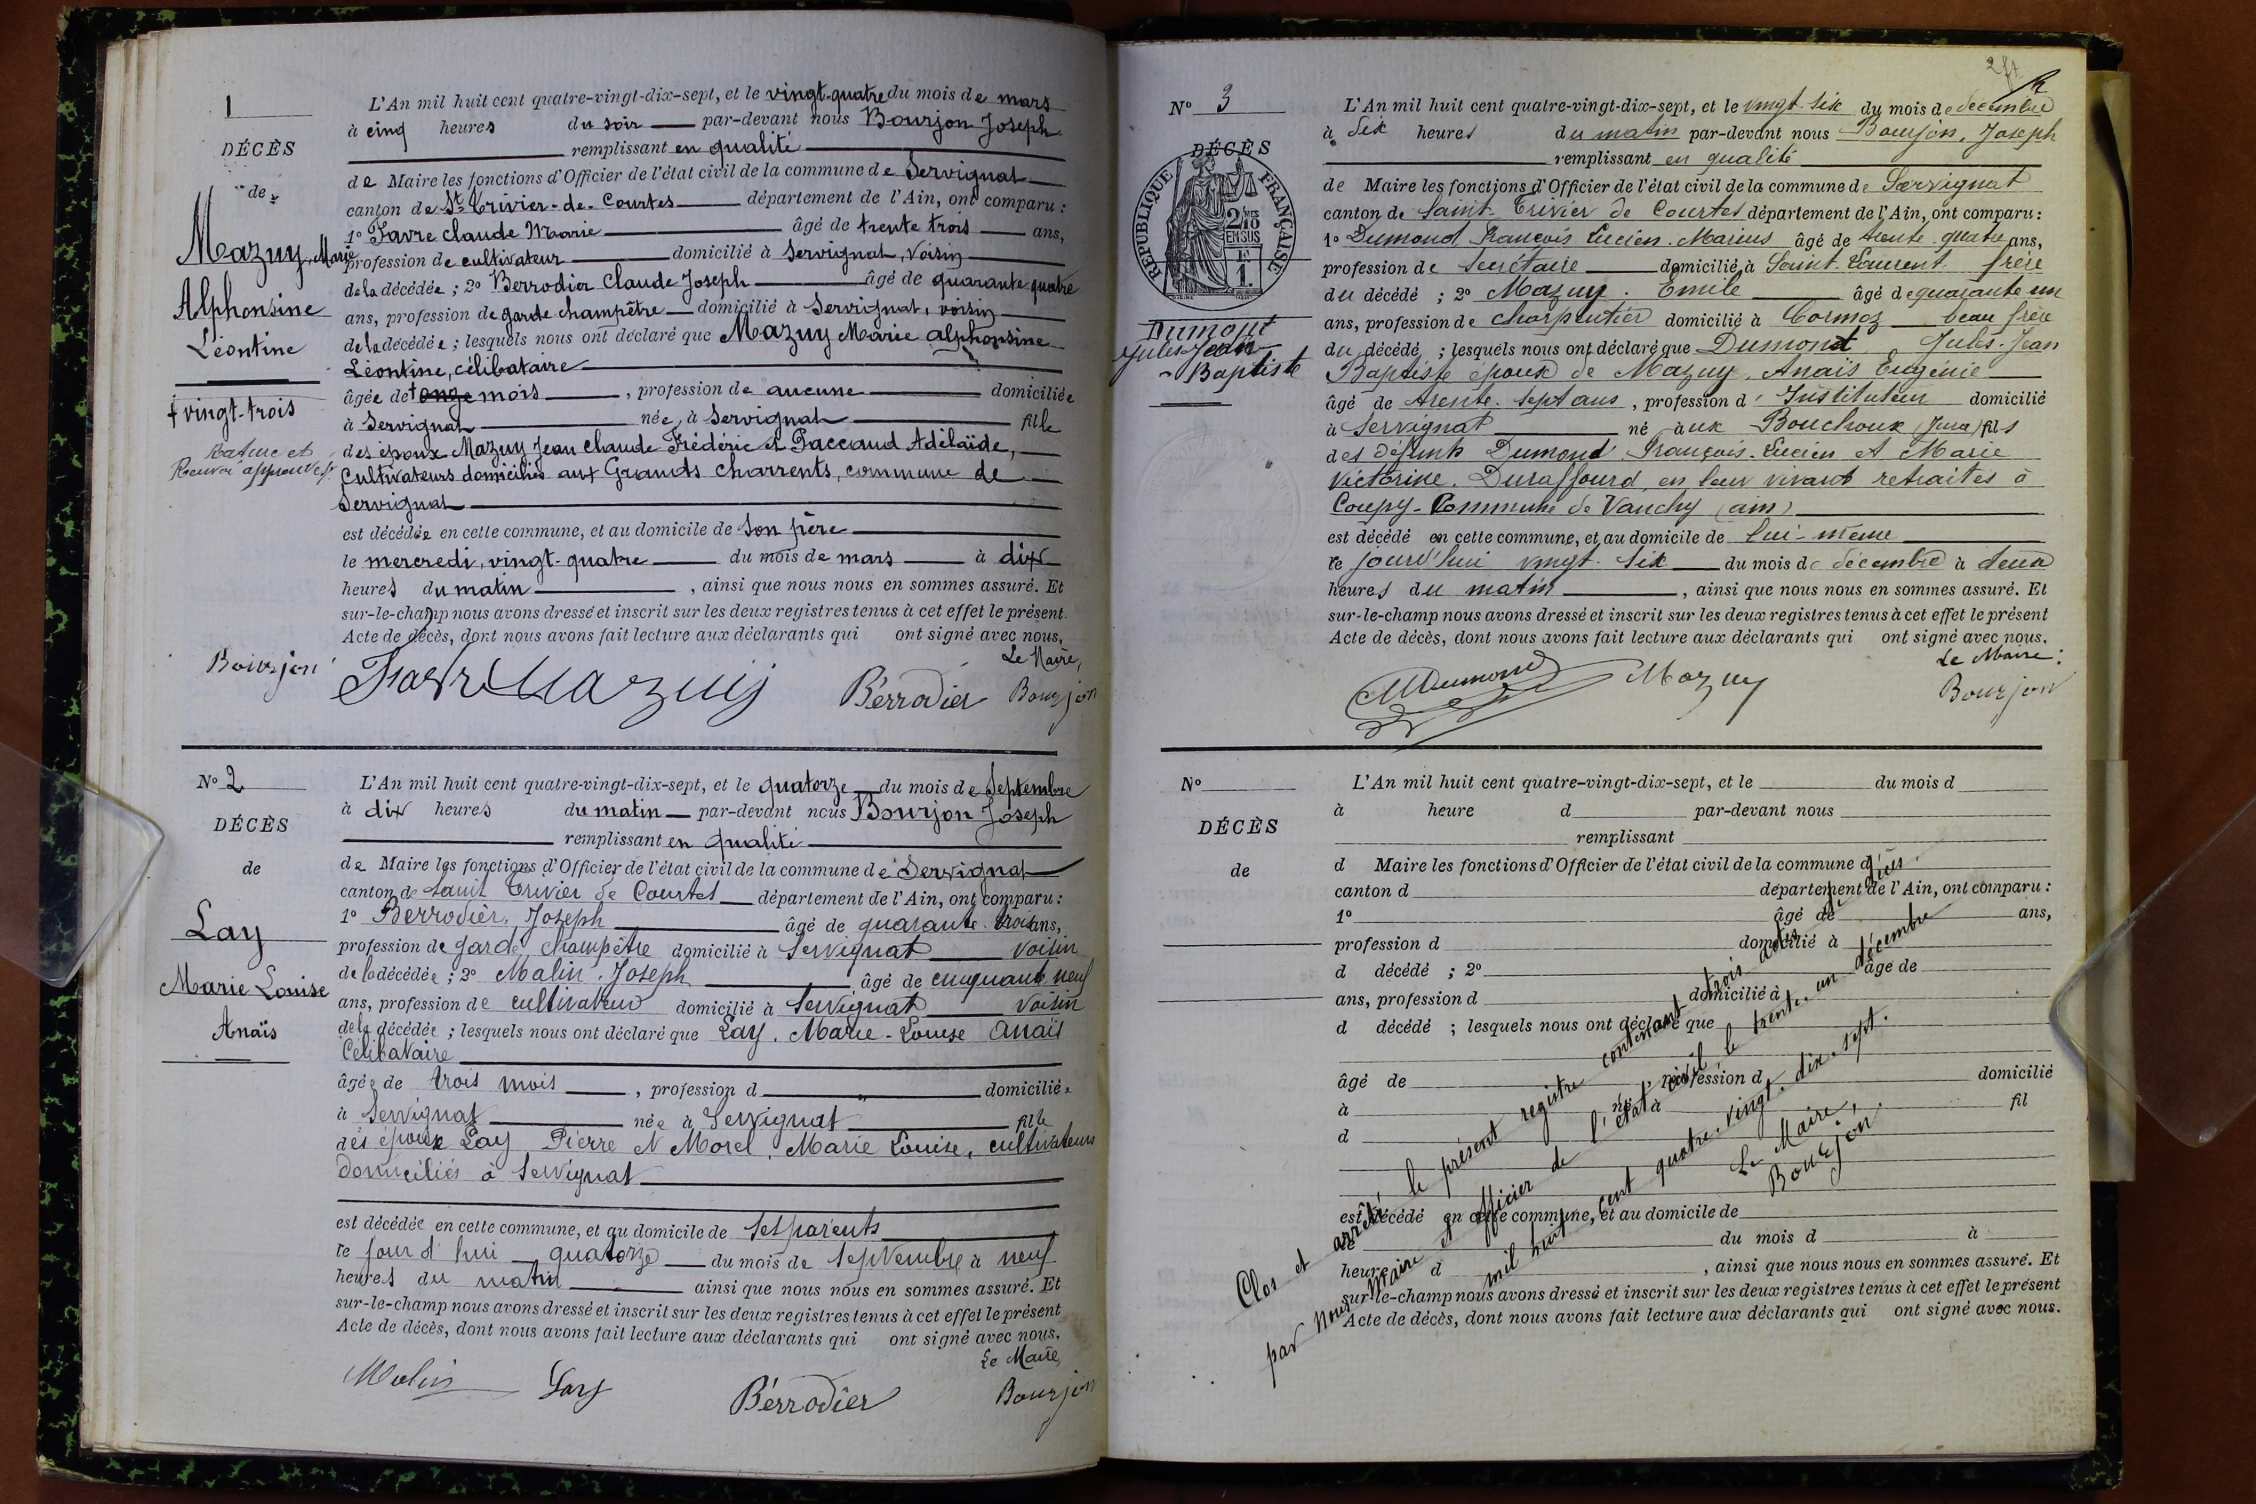 1
DÉCÈS
de
Mazuy, Marie
Alphonsine
Léontine
+ vingt-trois
Rature et
Renvoi approuvés
L'An mil huit cent quatre-vingt-dix-sept, et le vingt-quatre du mois de mars
à cinq heures du soir par-devant nous Bourjon Joseph
remplissant en qualité
de Maire les fonctions d'Officier de l'état civil de la commune de Servignat
canton de St Trivier-de-Courtes département de l'Ain, ont comparu :
1o Favre Claude Marie âgé de trente trois ans,
profession de cultivateur domicilié à Servignat, voisin
de la décédée ; 2o Berrodier Claude Joseph âgé de quarante quatre
ans, profession de garde champêtre domicilié à Servignat, voisin
de la décédée ; lesquels nous ont déclaré que Mazuy Marie Alphonsine
Léontine, célibataire
âgée de + onze mois , profession de aucune domiciliée
à Servignat née à Servignat fille
des époux Mazuy Jean Claude Frédéric et Paccaud Adélaïde,
Cultivateurs domiciliés aux Grands Charrents, commune de
Servignat
est décédée en cette commune, et au domicile de son père
le mercredi, vingt-quatre du mois de mars à dix
heures du matin , ainsi que nous nous en sommes assuré. Et
sur-le-champ nous avons dressé et inscrit sur les deux registres tenus à cet effet le présent
Acte de décès, dont nous avons fait lecture aux déclarants qui ont signé avec nous,
Le Maire,
Bourjon Favre Mazuy Berrodier Bourjon
No 2
DÉCÈS
de
Lay
Marie Louise
Anaïs
L'An mil huit cent quatre-vingt-dix-sept, et le quatorze du mois de Septembre
à dix heures du matin par-devant nous Bourjon Joseph
remplissant en qualité
de Maire les fonctions d'Officier de l'état civil de la commune de Servignat
canton de Saint Trivier de Courtes département de l'Ain, ont comparu :
1o Berrodier, Joseph âgé de quarante trois ans,
profession de garde champêtre domicilié à Servignat voisin
de la décédée ; 2o Malin. Joseph âgé de cinquante neuf
ans, profession de cultivateur domicilié à Servignat voisin
de la décédée ; lesquels nous ont déclaré que Lay. Marie-Louise Anaïs
Célibataire
âgée de trois mois , profession d " domiciliée
à Servignat née à Servignat fille
des époux Lay Pierre et Morel, Marie Louise, cultivateurs
domiciliés à Servignat
est décédée en cette commune, et au domicile de ses parents
le jour d'hui quatorze du mois de septembre à neuf
heures du matin ainsi que nous nous en sommes assuré. Et
sur-le-champ nous avons dressé et inscrit sur les deux registres tenus à cet effet le présent
Acte de décès, dont nous avons fait lecture aux déclarants qui ont signé avec nous.
Le Maire,
Malin Lay Berrodier Bourjon
No 3
DÉCÈS
RÉPUBLIQUE FRANÇAISE
Dumont
Jules Jean
Baptiste
L'An mil huit cent quatre-vingt-dix-sept, et le vingt-six du mois de décembre
à dix heures du matin par-devant nous Bourjon, Joseph
remplissant en qualité
de Maire les fonctions d'Officier de l'état civil de la commune de Servignat
canton de Saint-Trivier de Courtes département de l'Ain, ont comparu :
1o Dumond François Lucien. Marius âgé de trente-quatre ans,
profession de Secrétaire domicilié à Saint-Laurent frère
du décédé ; 2o Mazuy. Emile âgé de quarante un
ans, profession de charpentier domicilié à Cormoz beau frère
du décédé ; lesquels nous ont déclaré que Dumont Jules-Jean
Baptiste époux de Mazuy, Anaïs Eugénie
âgé de trente-sept ans , profession d'Instituteur domicilié
à Servignat né aux Bouchoux (Jura) fils
des défunts Dumond François-Lucien et Marie
Victorine. Duraffourd, en leur vivant retraités à
Coupy-Commune de Vanchy (ain)
est décédé en cette commune, et au domicile de lui-même
le jourd'hui vingt-six du mois de décembre à deux
heures du matin , ainsi que nous nous en sommes assuré. Et
sur-le-champ nous avons dressé et inscrit sur les deux registres tenus à cet effet le présent
Acte de décès, dont nous avons fait lecture aux déclarants qui ont signé avec nous.
Le Maire :
MDumond Mazuy Bourjon
No
DÉCÈS
de
L'An mil huit cent quatre-vingt-dix-sept, et le du mois d
à heure d par-devant nous
remplissant
d Maire les fonctions d'Officier de l'état civil de la commune d
canton d département de l'Ain, ont comparu :
1o âgé de ans,
profession d domicilié à
d décédé ; 2o âgé de
ans, profession d domicilié à
d décédé ; lesquels nous ont déclaré que
âgé de profession d domicilié
à né à fil
d
est décédé en cette commune, et au domicile de
le du mois d à
heure d , ainsi que nous nous en sommes assuré. Et
sur-le-champ nous avons dressé et inscrit sur les deux registres tenus à cet effet le présent
Acte de décès, dont nous avons fait lecture aux déclarants qui ont signé avec nous.
Clos et arrêté le présent registre contenant trois actes de décès.
par Nous Maire et officier de l'état civil, le trente-un décembre
mil huit cent quatre-vingt-dix-sept.
Le Maire,
Bourjon